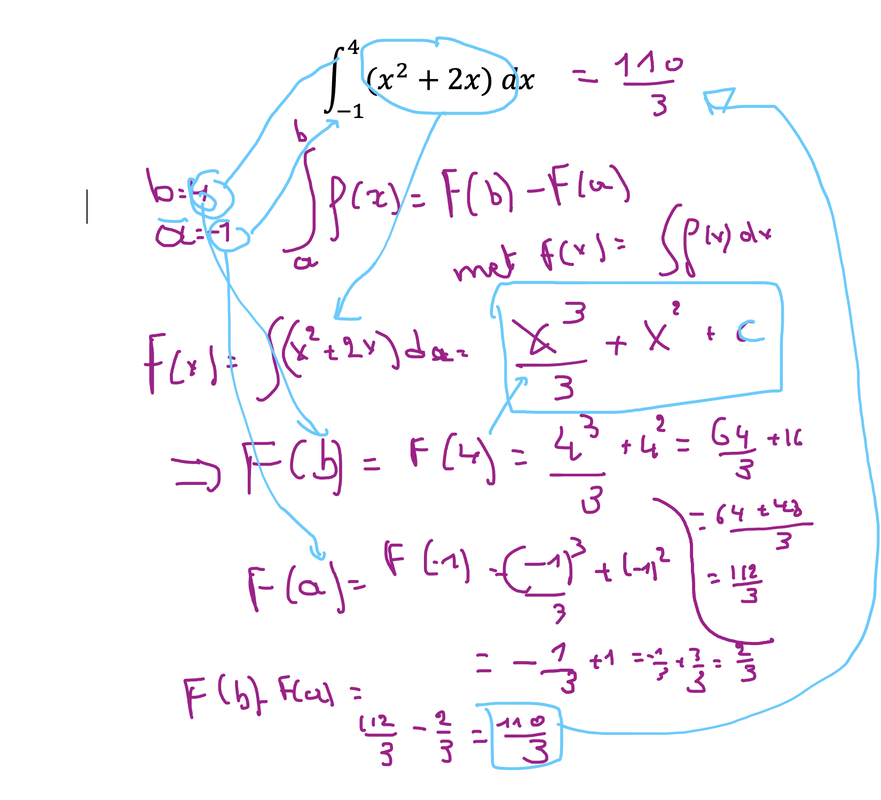 ∫₋₁⁴ (x² + 2x) dx = 110/3
b=4
a=-1
∫ₐᵇ f(x) = F(b) - F(a)
met F(x) = ∫f(x) dx
F(x) = ∫(x²+2x) dx = x³/3 + x² + C
⇒ F(b) = F(4) = 4³/3 + 4² = 64/3 + 16
= (64 + 48)/3
= 112/3
F(a) = F(-1) = (-1)³/3 + (-1)²
= -1/3 + 1 = -1/3 + 3/3 = 2/3
F(b) - F(a) =
112/3 - 2/3 = 110/3